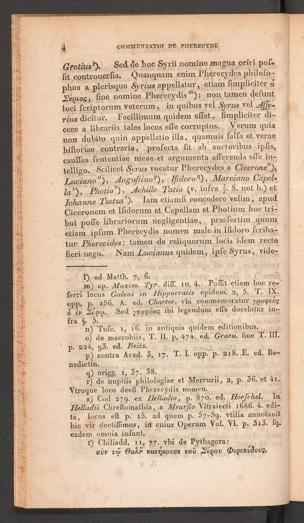 4 COMMENTATIO DE PHERECYDE
Grotius l). Sed de hoc Syrii nomine magna oriri pos-
sit controuersia. Quanquam enim Pherecydes philoso-
phus a plerisque Syrius appellatur, etiam simpliciter ὁ
Σύριος, sine nomine Pherecydis m): non tamen desunt
loci scriptorum veterum, in quibus vel Syrus vel Assy-
rius dicitur. Facillimum quidem esset, simpliciter di-
cere a librariis tales locos esse corruptos. Verum quia
non dubito quin appellatio illa, quamuis falsa et verae
historiae contraria, profecta sit ab auctoribus ipsis,
caussas sententiae meae et argumenta afferenda esse in-
telligo. Scilicet Syrus vocatur Pherecydes a Cicerone n),
Luciano o), Augustino p), Isidoro q), Marciano Capel-
la r), Photio s), Achille Tatio (v. infra §. 8. not. b.) et
Iohanne Tzetza t). Iam etiamsi concedere velim, apud
Ciceronem et Isidorum et Capellam et Photium hoc tri-
bui posse librariorum negligentiae, praesertim quum
etiam ipsum Pherecydis nomen male in Isidoro scriba-
tur Ferecides: tamen de reliquorum locis idem recte
fieri nego. Nam Lucianus quidem, ipse Syrus, vide-
l) ad Matth. 7, 6.
m) ap. Maxim. Tyr. diss. 10, 4. Possit etiam huc re-
ferri locus Galeni in Hippocratis epidem. 2, 5. T. IX.
opp. p. 156. A. ed. Charter. vbi commemoratur γραφεὺς
ὁ ἐν Σύρῳ. Sed γραφέως ibi legendum esse docebitur in-
fra §. 5.
n) Tusc. 1, 16. in antiquis quidem editionibus.
o) de macrobiis, T. II. p. 474 ed. Graeu. siue T. III.
p. 224, 93. ed. Reitz.
p) contra Acad. 3, 17. T. I. opp. p. 218. E. ed. Be-
nedictin.
q) origg. 1, 37. 38.
r) de nuptiis philologiae et Mercurii, 2, p. 36. et 41.
Vtroque loco deest Pherecydis nomen.
s) Cod 279. ex Helladio, p. 870. ed. Hoeschel. In
Helladii Chresthomathia, a Meursio Vltraiecti 1686. 4. edi-
ta, locus est p. 15. ad quem p. 37-39. vtilia annotauit
hic vir doctissimus, in cuius Operum Vol. VI. p. 313. sq.
eadem omnia insunt.
t) Chiliadd. 11, 77. vbi de Pythagora:
σὺν τῷ Θαλῇ κατήκουσε τοῦ Σύρου Φερεκύδους.